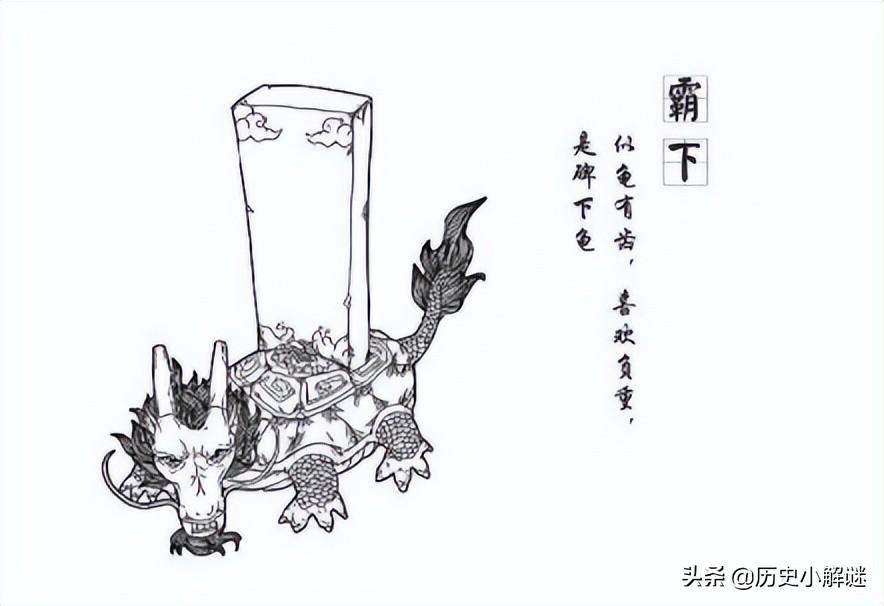 霸下
似龟有齿，喜欢负重，
是碑下龟
头条 @历史小解谜